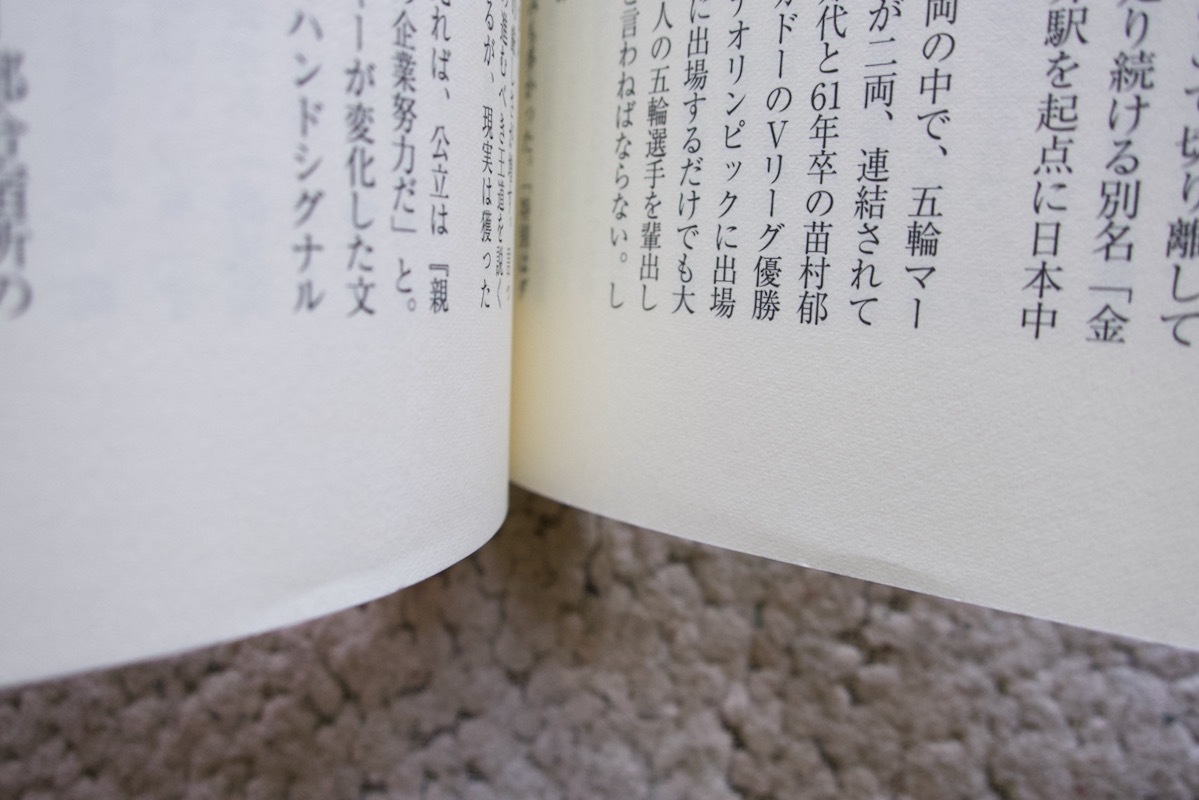 切り離して
走り続ける別名「金
駅を起点に日本中
両の中で、五輪マー
が二両、連結されて
代と61年卒の苗村郁
カドーのVリーグ優勝
オリンピックに出場
に出場するだけでも大
人の五輪選手を輩出し
と言わねばならない。し
進むべき王道を説く
るが、現実は獲った
れば、公立は『親
企業努力だ」と。
ーが変化した文
ハンドシグナル